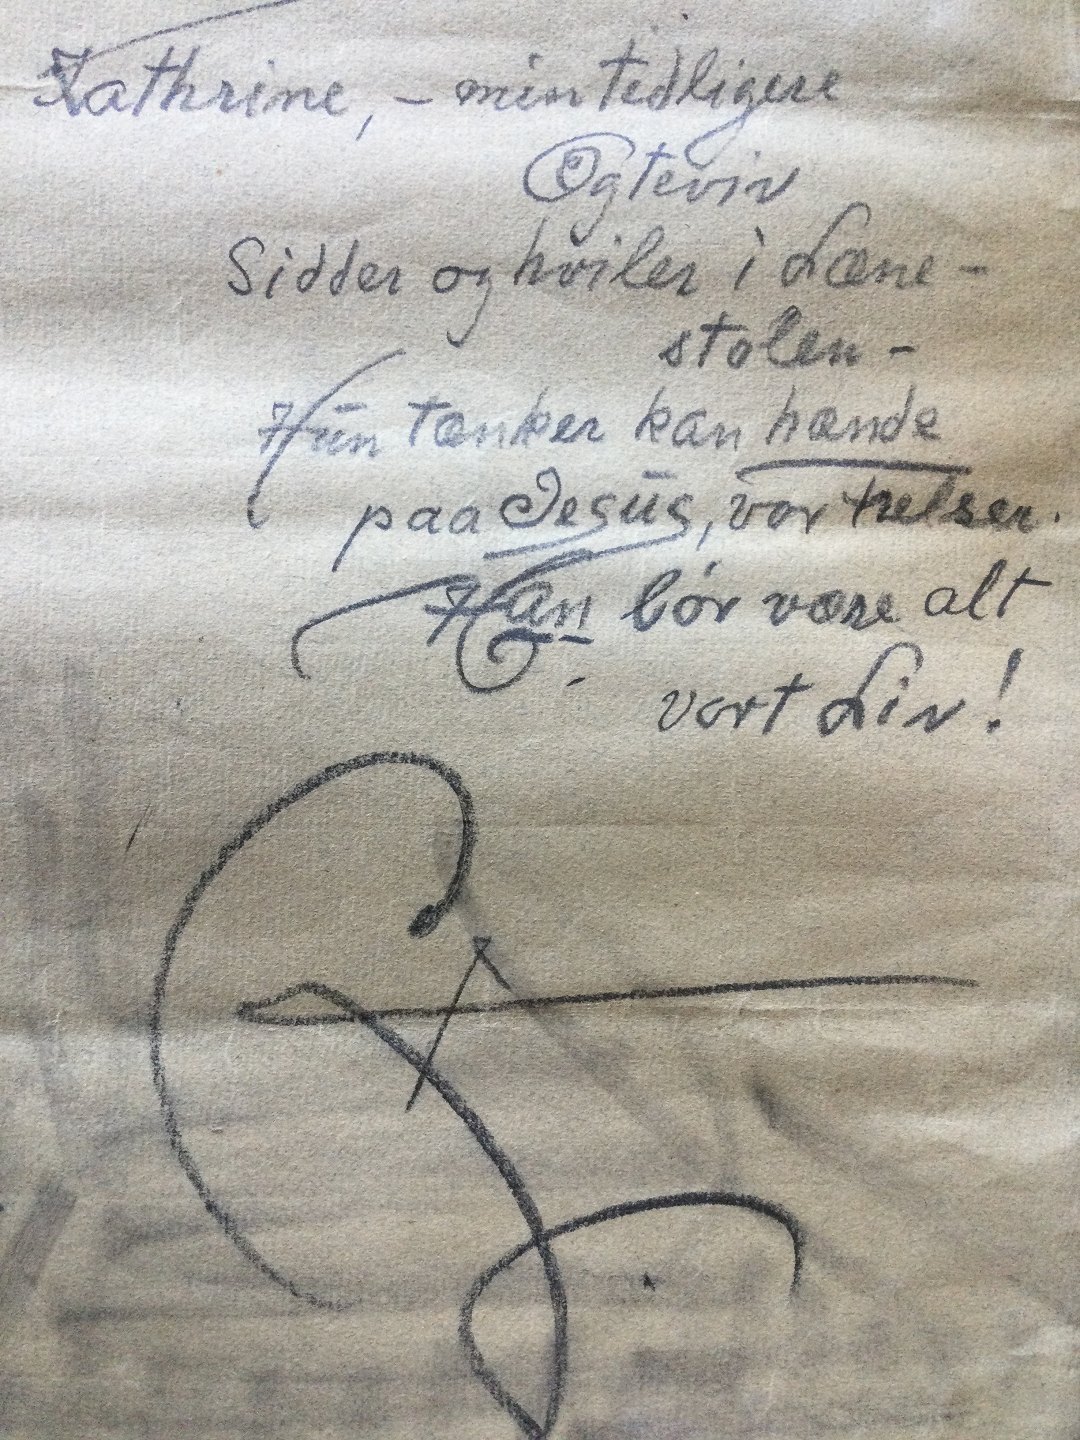 Kathrine, - min tidligere
Ogteviv
Sidder og hviler i Læne-
stolen -
Hūn tænker kan hænde
paa Jesūs, vor Frelser.
Han bór være alt
vort Liv!